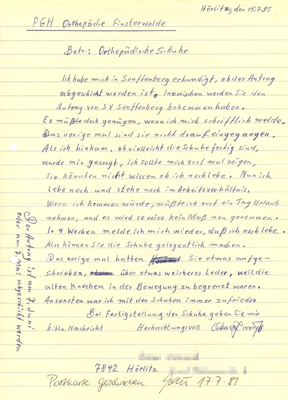 Hörlitz, den 15.7.81
PGH Orthopädie Finsterwalde
Betr.: Orthopädische Schuhe
Ich habe mich in Senftenberg erkundigt, ob der Antrag
abgeschickt worden ist, inzwischen werden Sie den
Antrag von SV Senftenberg bekommen haben.
Es müßte doch genügen, wenn ich mich schriftlich melde.
Das vorige mal sind sie nicht darauf eingegangen.
Als ich hinkam, ob vielleicht die Schuhe fertig sind,
wurde mir gesagt, ich sollte mich erst mal zeigen,
Sie könnten nicht wissen ob ich noch lebe. Nun ich
lebe noch und stehe noch im Arbeitsverhältnis,
Wenn ich kommen würde, müßte ich erst ein Tag Urlaub
nehmen, und es wird so wie so kein Maß mehr genommen.
In 4 Wochen melde ich mich wieder, daß ich noch lebe.
Also können Sie die Schuhe gelegentlich machen.
Das vorige mal hatten Sie etwas aufge-
schrieben, über etwas weiteres Leder, weil die
alten Knochen in der Bewegung zu begrenzt waren.
Ansonsten war ich mit den Schuhen immer zufrieden
Bei Fertigstellung der Schuhe geben Sie mir
bitte Nachricht Hochachtungsvoll
7842 Hörlitz
Postkarte geschrieben 17.7.81
Der Antrag ist am 7. Juni
oder am 7. Mai abgeschickt worden